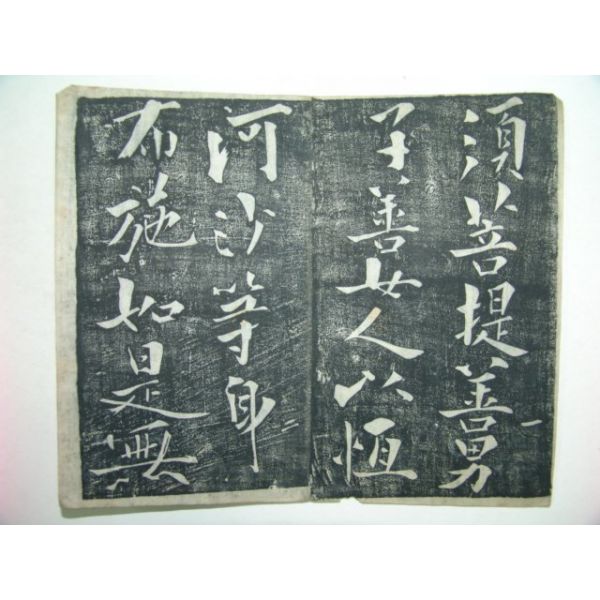 須菩提善男
子善女人以恒
河沙等身
布施如是無